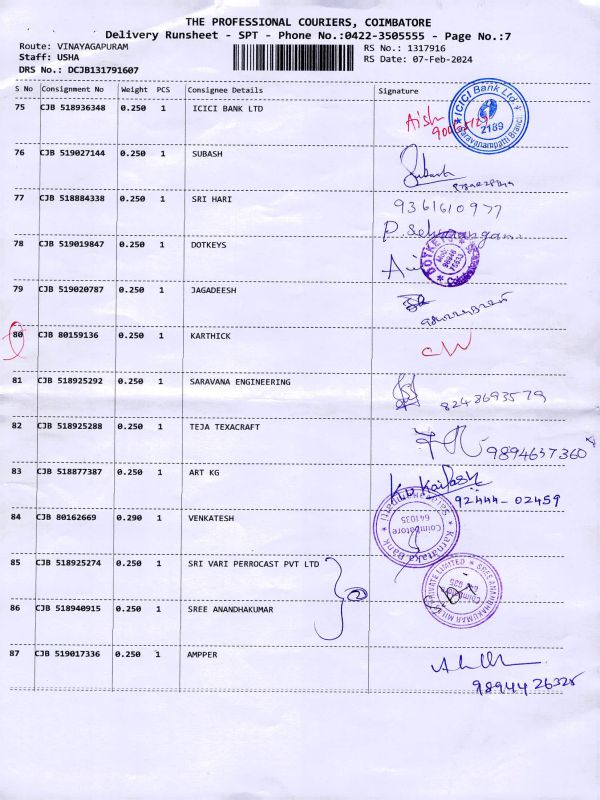 THE PROFESSIONAL COURIERS, COIMBATORE
Delivery Runsheet - SPT - Phone No.:0422-3505555 - Page No.:7
Route: VINAYAGAPURAM RS No.: 1317916
Staff: USHA RS Date: 07-Feb-2024
DRS No.: DCJB131791607
S No Consignment No Weight PCS Consignee Details Signature
75 CJB 518936348 0.250 1 ICICI BANK LTD Aish
ICICI Bank Ltd
2189
Saravanampatti Branch
76 CJB 519027144 0.250 1 SUBASH Subash
77 CJB 518884338 0.250 1 SRI HARI 9361610977
78 CJB 519019847 0.250 1 DOTKEYS
DOTKEYS
79 CJB 519020787 0.250 1 JAGADEESH
80 CJB 80159136 0.250 1 KARTHICK CW
81 CJB 518925292 0.250 1 SARAVANA ENGINEERING 8248693579
82 CJB 518925288 0.250 1 TEJA TEXACRAFT 9894637360
83 CJB 518877387 0.250 1 ART KG Kailash
92444-02459
84 CJB 80162669 0.290 1 VENKATESH
Karnataka Bank
Coimbatore
641035
85 CJB 518925274 0.250 1 SRI VARI PERROCAST PVT LTD
2
86 CJB 518940915 0.250 1 SREE ANANDHAKUMAR
SREE ANANDHAKUMAR MILLS PRIVATE LIMITED
87 CJB 519017336 0.250 1 AMPPER
9894426325